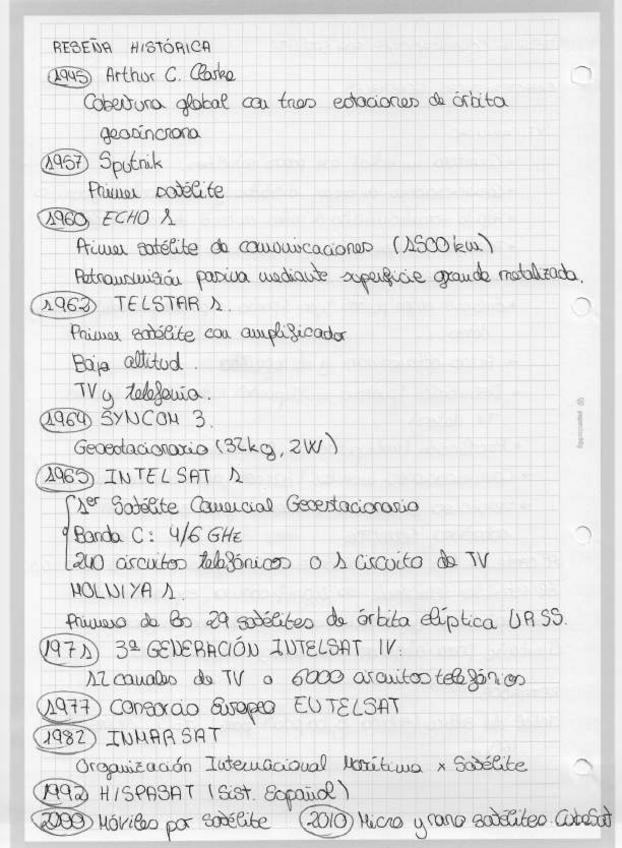 RESEÑA HISTÓRICA
1945 Arthur C. Clarke
Cobertura global con tres estaciones de órbita
geosíncrona
1957 Sputnik
Primer satélite
1960 ECHO 1
Primer satélite de comunicaciones (1500 km)
Retransmisión pasiva mediante superficie grande metalizada.
1962 TELSTAR 1.
Primer satélite con amplificador
Baja altitud.
TV y telefonía.
1964 SYNCOM 3.
Geoestacionario (32kg, 2W)
1965 INTELSAT 1
1er Satélite Comercial Geoestacionario
Banda C: 4/6 GHz
240 circuitos telefónicos o 1 circuito de TV
MOLNIYA 1.
Primero de los 29 satélites de órbita elíptica URSS.
1971 3ª GENERACIÓN INTELSAT IV:
12 canales de TV o 6000 circuitos telefónicos
1977 Consorcio Europeo EUTELSAT
1982 INMARSAT
Organización Internacional Marítima x Satélite
1992 HISPASAT (Sist. Español)
2000 Móviles por satélite 2010 Micro y nano satélites CubeSat